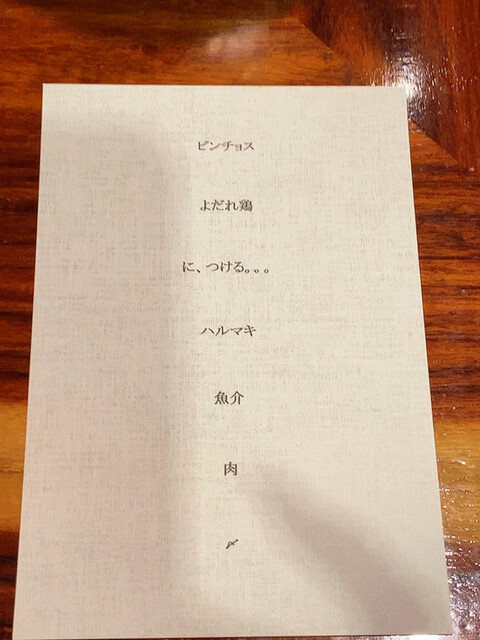 ピンチョス
よだれ鶏
に、つける。。。
ハルマキ
魚介
肉
〆